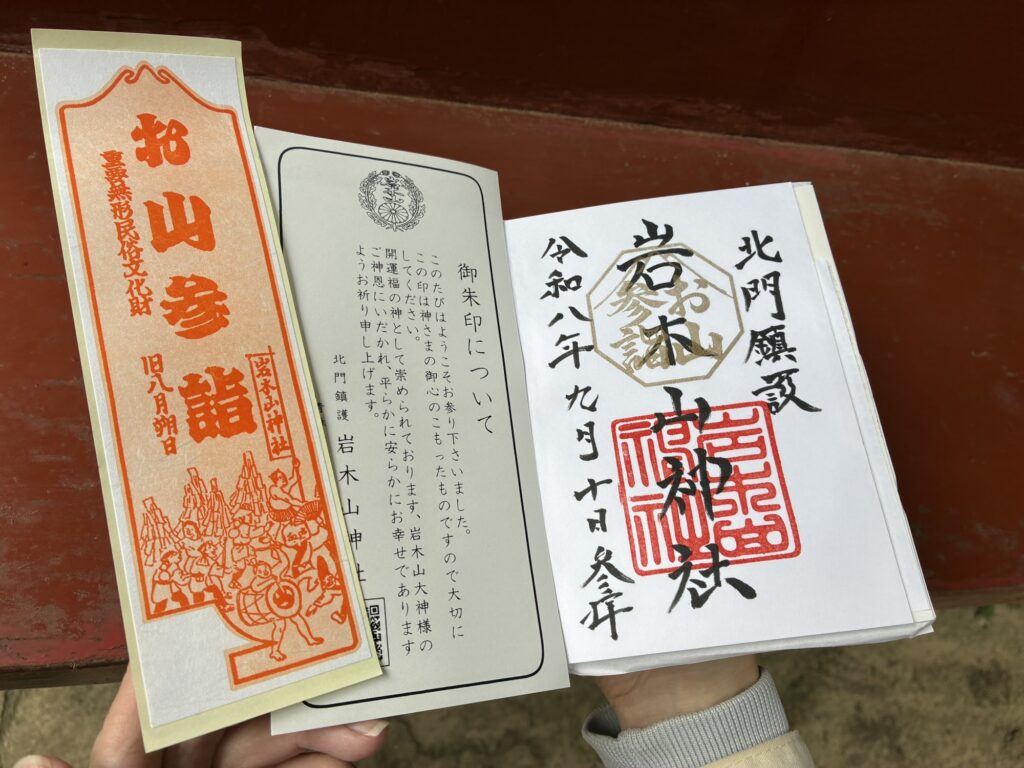 お山参詣
重要無形民俗文化財
旧八月朔日
岩木山神社
御朱印について
このたびはようこそお参り下さいました。
この印は神さまの御心のこもったものですので大切に
してください。
開運福の神として崇められております、岩木山大神様の
ご神恩にいだかれ、平らかに安らかにお幸せであります
ようお祈り申し上げます。
北門鎮護 岩木山神社
北門鎮護
岩木山神社
お山
参詣
令和八年九月十日参拝